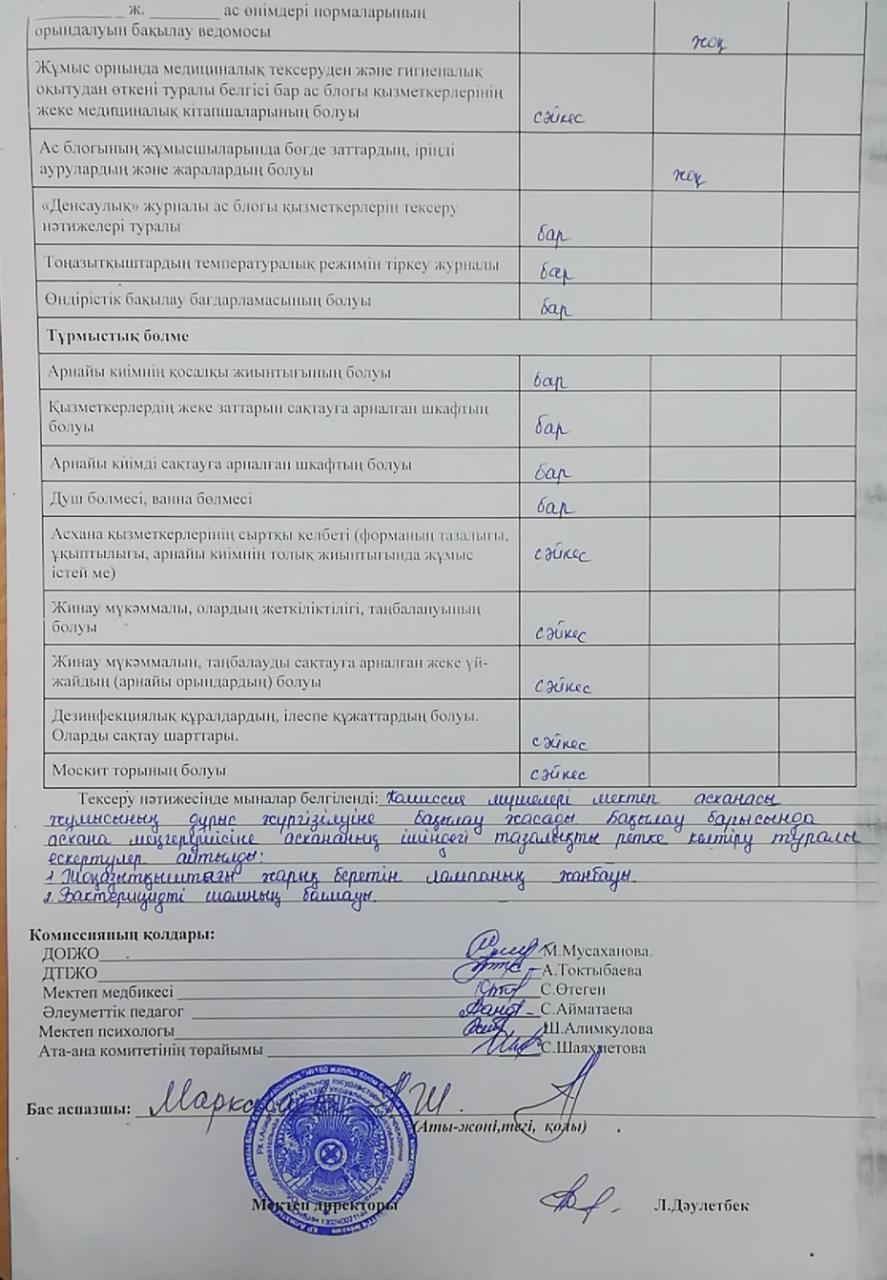 ж. ас өнімдері нормаларының
орындалуын бақылау ведомосы
жоқ
Жұмыс орнында медициналық тексеруден және гигиеналық
оқытудан өткені туралы белгісі бар ас блогы қызметкерлерінің
жеке медициналық кітапшаларының болуы
сәйкес
Ас блогының жұмысшыларында бөгде заттардың, іріңді
аурулардың және жаралардың болуы
жоқ
«Денсаулық» журналы ас блогы қызметкерлерін тексеру
нәтижелері туралы
бар
Тоңазытқыштардың температуралық режимін тіркеу журналы
бар
Өндірістік бақылау бағдарламасының болуы
бар
Тұрмыстық бөлме
Арнайы киімнің қосалқы жиынтығының болуы
бар
Қызметкерлердің жеке заттарын сақтауға арналған шкафтың
болуы
бар
Арнайы киімді сақтауға арналған шкафтың болуы
бар
Душ бөлмесі, ванна бөлмесі
бар
Асхана қызметкерлерінің сыртқы келбеті (форманың тазалығы,
ұқыптылығы, арнайы киімнің толық жиынтығында жұмыс
істей ме)
сәйкес
Жинау мүкәммалы, олардың жеткіліктілігі, таңбалануының
болуы
сәйкес
Жинау мүкәммалын, таңбалауды сақтауға арналған жеке үй-
жайдың (арнайы орындардың) болуы
сәйкес
Дезинфекциялық құралдардың, ілеспе құжаттардың болуы.
Оларды сақтау шарттары.
сәйкес
Москит торының болуы
сәйкес
Тексеру нәтижесінде мыналар белгіленді: Комиссия мүшелері мектеп асханасы
жұмысының дұрыс жүргізілуіне бақылау жасады. Бақылау барысында
асхана меңгерушісіне асхананың ішіндегі тазалықты ретке келтіру туралы
ескертулер айтылды:
1. Тоңазытқыштағы жарық беретін лампаның жанбауы
2. Бактерицидті шамның болмауы.
Комиссияның қолдары:
ДОІЖО М.Мусаханова.
ДТІЖО А.Токтыбаева
Мектеп медбикесі С.Өтеген
Әлеуметтік педагог С.Айматаева
Мектеп психологы Ш.Алимкулова
Ата-ана комитетінің төрайымы С.Шаяхметова
Бас аспазшы: А.Ш.
(Аты-жөні,тегі, қолы)
Мектеп директоры Л.Дәулетбек